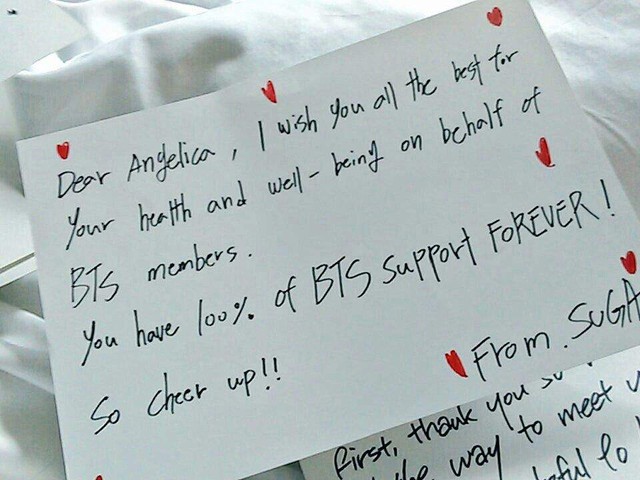 Dear Angelica, I wish you all the best for
your health and well-being on behalf of
BTS members.
You have 100% of BTS support FOREVER!
So cheer up!!
From. SUGA
first, thank you
the way to meet